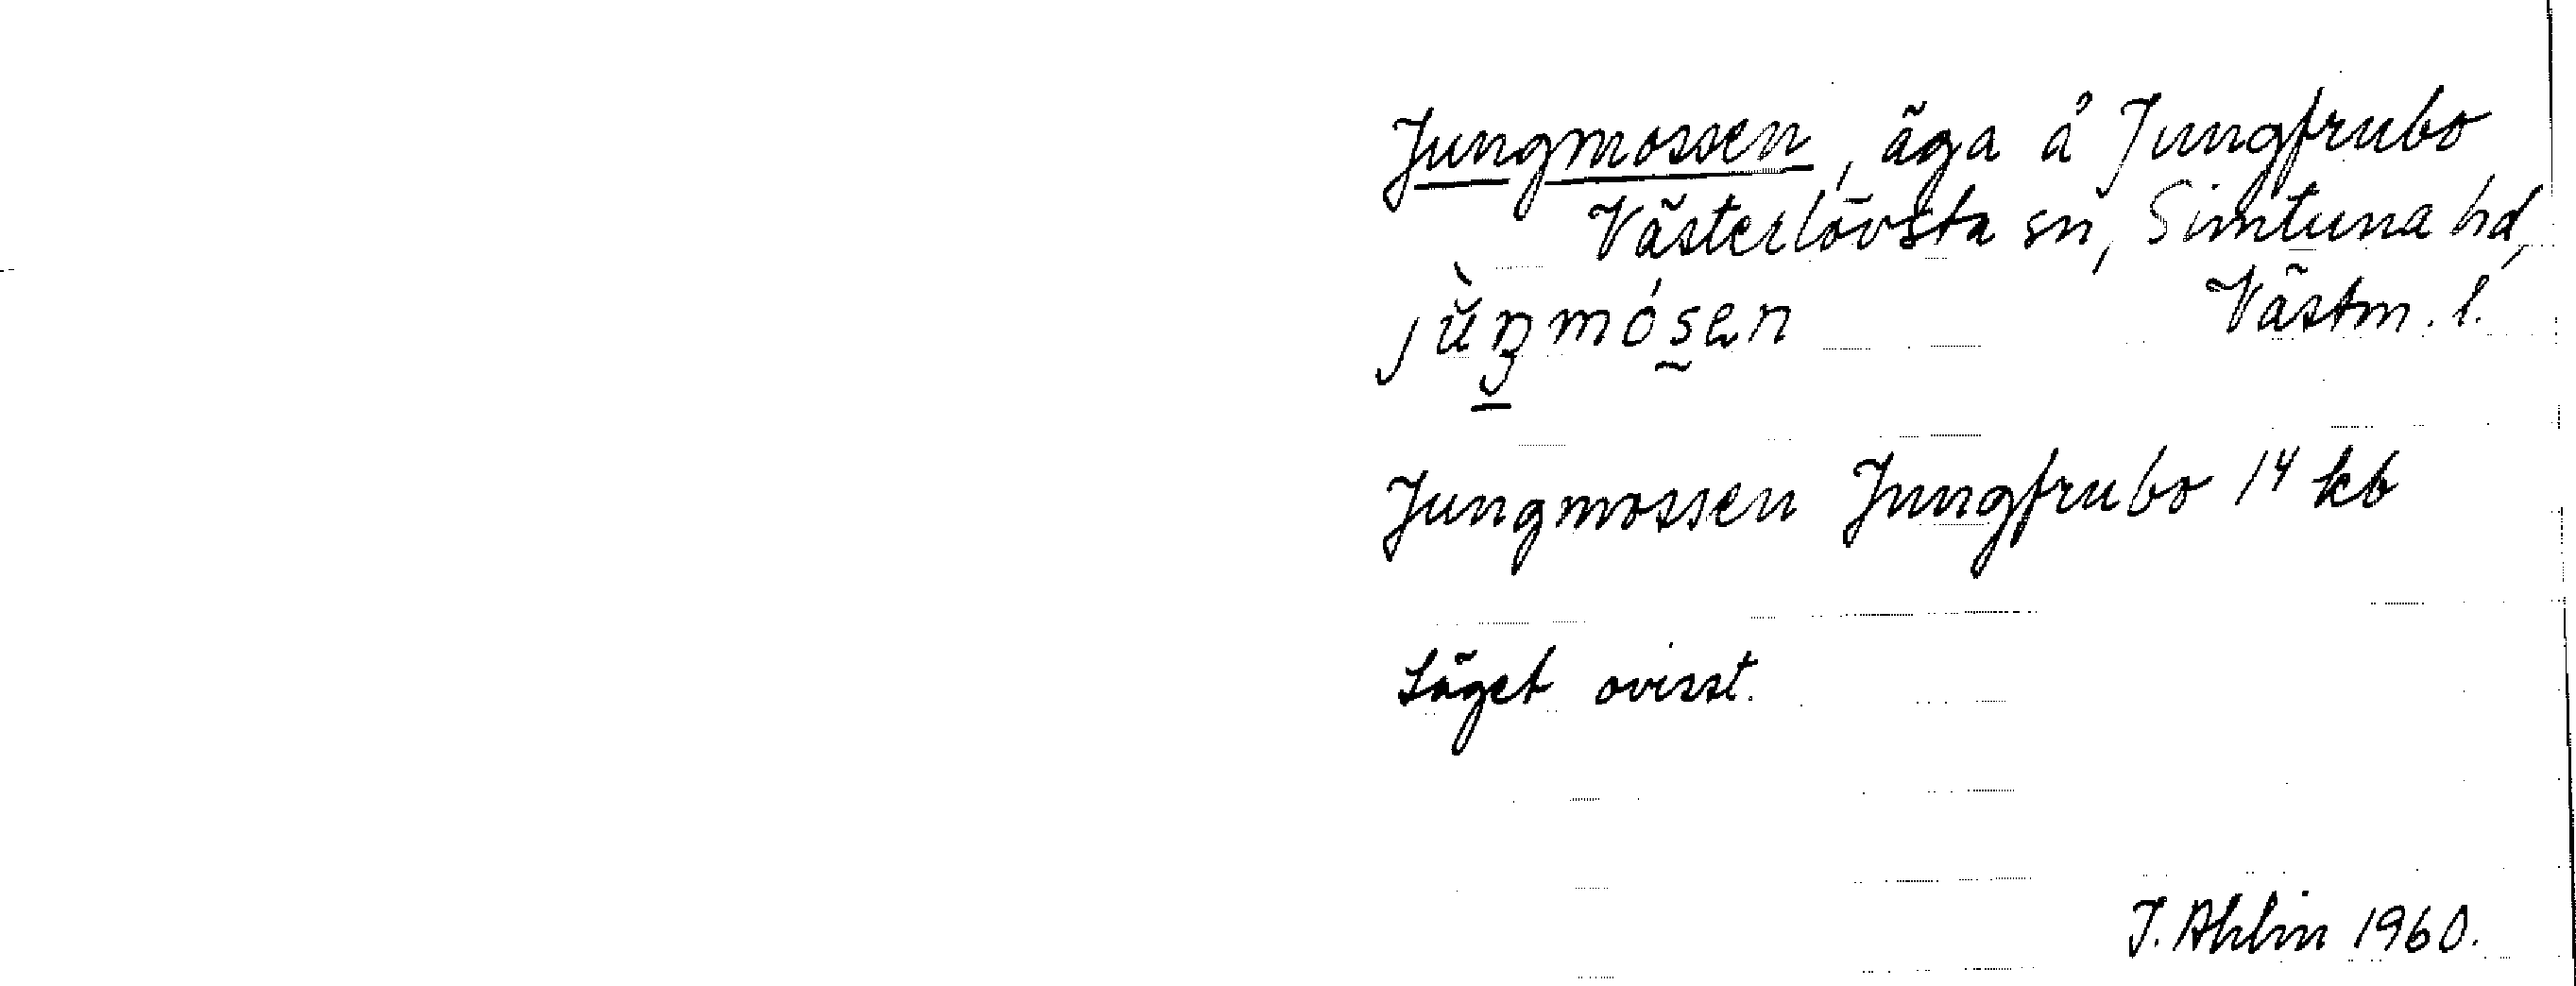 Jungmossen, äga å Jungfrubo
Västerlövsta sn, Simtuna hd,
Västm. l.
Jungmossen Jungfrubo 14 kb
Läget ovisst.
J. Ahlin 1960.